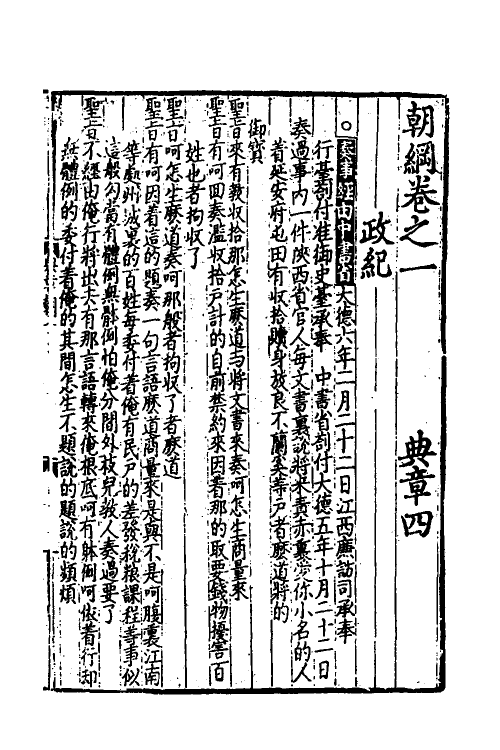 朝綱卷之一　典章四
政紀
○奏事經由中書省大德六年二月二十二日江西廉訪司承奉
行臺劄付准御史臺承奉　中書省劄付大德五年十月二十二日
奏過事內一件陝西省官人每文書裏說將來責赤裏小名的人
着延安府屯田有收拾贖身放良不蘭奚等戶者麽道將的
御寶
聖旨來有教收拾那怎生麽道与將文書來奏呵怎生商量來
聖旨有呵回奏濫收拾戶計的自前禁約來因着那的取要錢物擾害百
姓也者拘收了
聖旨呵怎生麽道奏呵那般者拘收了者麽道
聖旨有呵因着這的題奏一句言語麽道商量來是與不是呵腹裏江南
等處州城裏的百姓每委付着俺有民戶的差發稅粮課程等事似
這般勾當有體例無體例怕俺分間外枝兒教人奏過要了
聖旨不經由俺行將出去有那言語轉來俺根底呵有躰例呵依着行却
經體例的委付着俺的其間怎生不題說的題說的頻煩